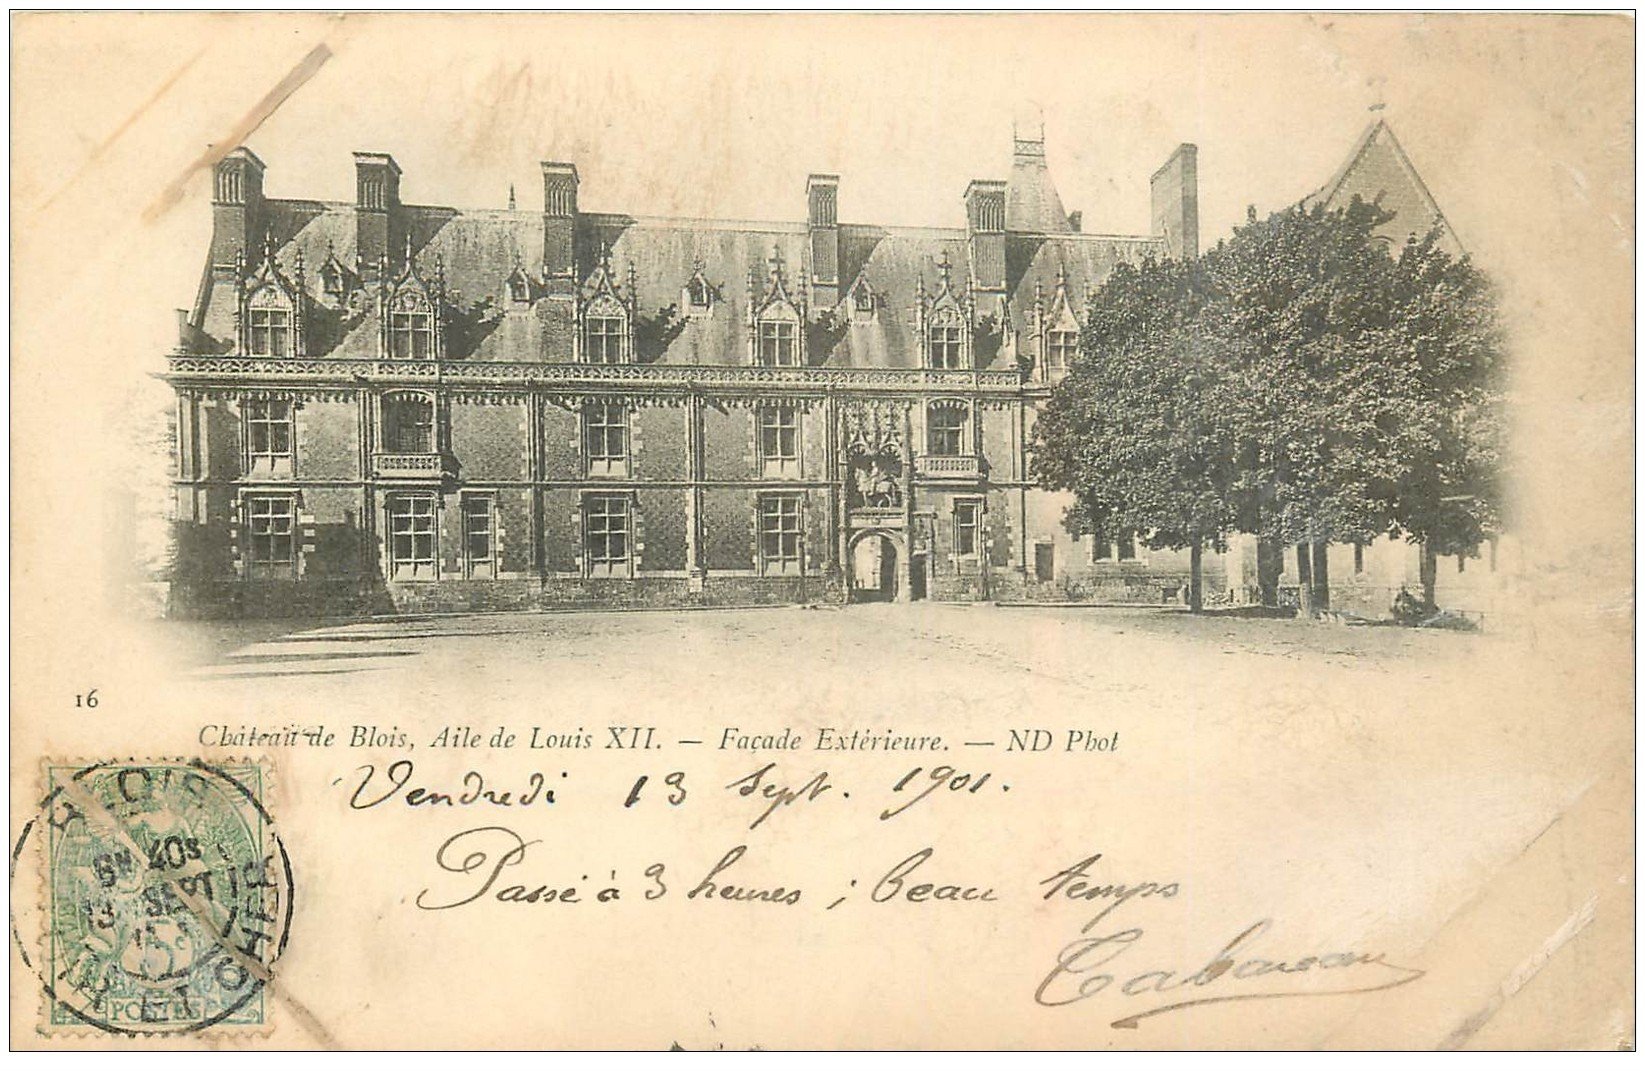 16
Château de Blois, Aile de Louis XII. — Façade Extérieure. — ND Phot
Vendredi 13 Sept. 1901.
Passé à 3 heures ; beau temps
BLOIS
40S
13 SEPT
LOIR ET CHER
5c
POSTES